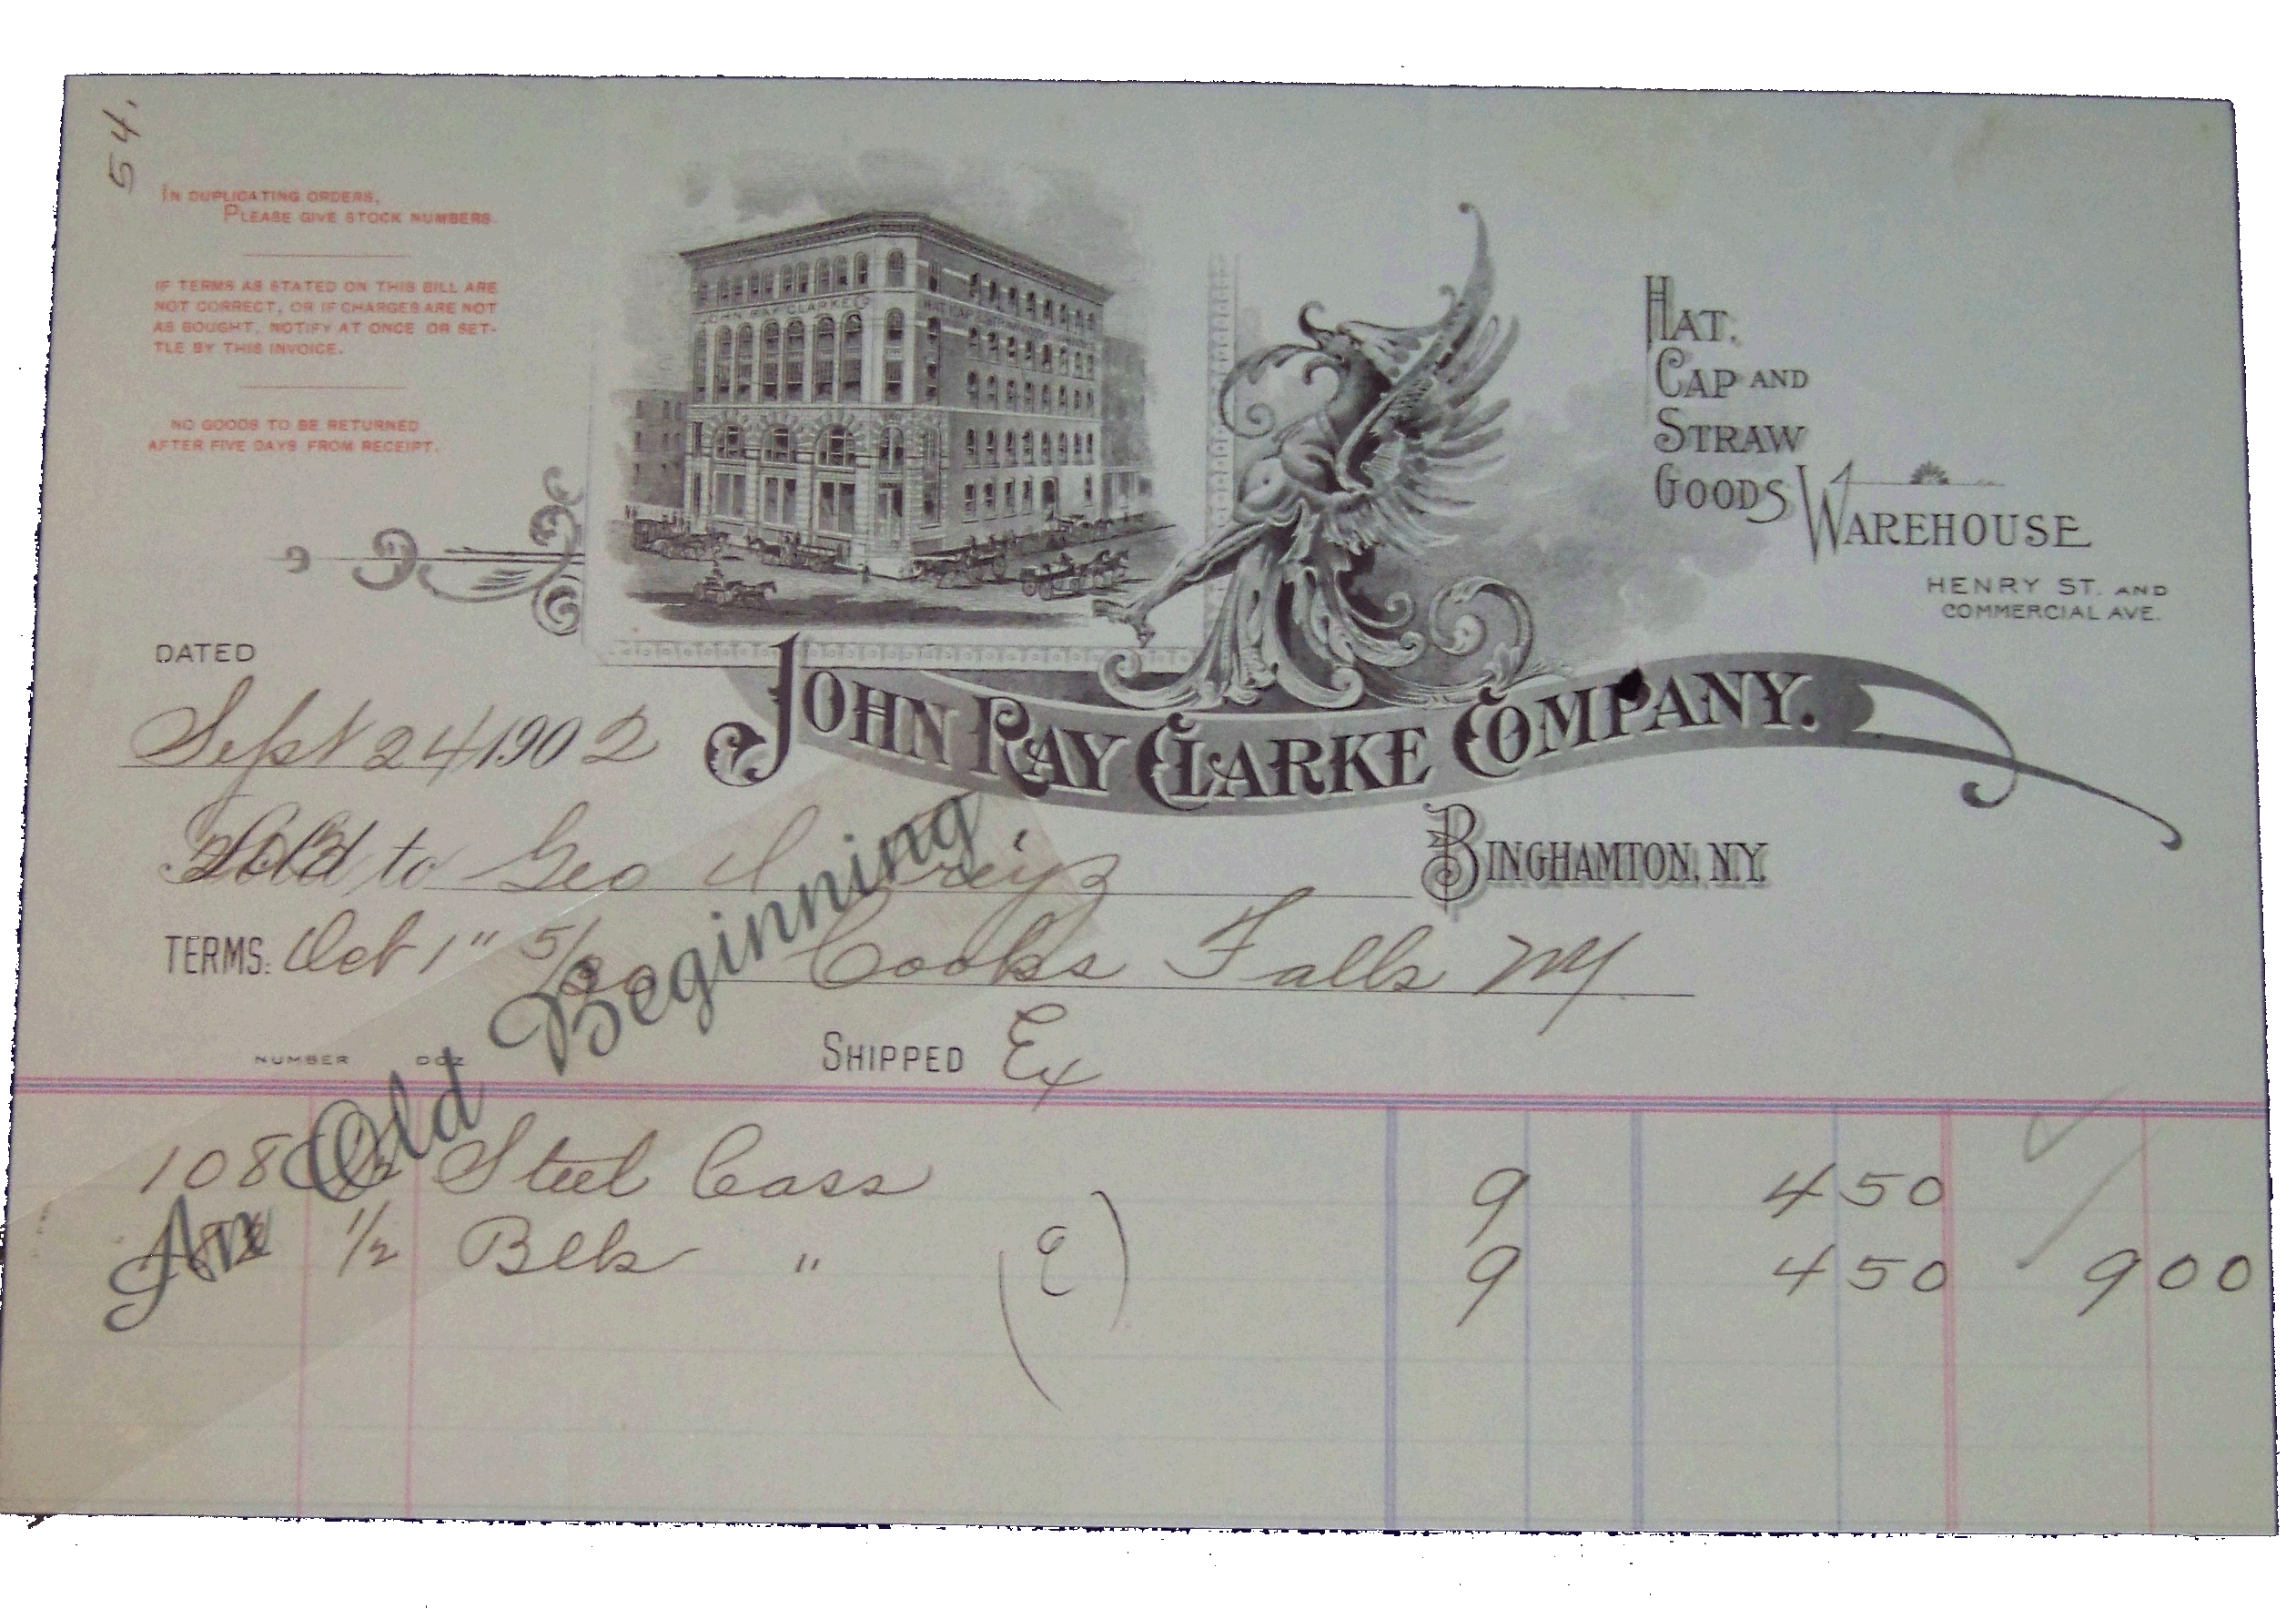 54.
IN DUPLICATING ORDERS,
PLEASE GIVE STOCK NUMBERS.
IF TERMS AS STATED ON THIS BILL ARE
NOT CORRECT, OR IF CHARGES ARE NOT
AS BOUGHT, NOTIFY AT ONCE OR SET-
TLE BY THIS INVOICE.
NO GOODS TO BE RETURNED
AFTER FIVE DAYS FROM RECEIPT.
JOHN RAY CLARKE CO
HAT,
CAP AND
STRAW
GOODS WAREHOUSE
HENRY ST. AND
COMMERCIAL AVE.
DATED
Sept 24 1902
JOHN RAY CLARKE COMPANY.
Sold to Geo
BINGHAMTON, N.Y.
TERMS: Oct 1" 5/ Cooks Falls NY
NUMBER DOZ SHIPPED Ex
108 1/2 Steel Cass 9 4 50
1/2 Blk " 9 4 50 9 00
An Old Beginning